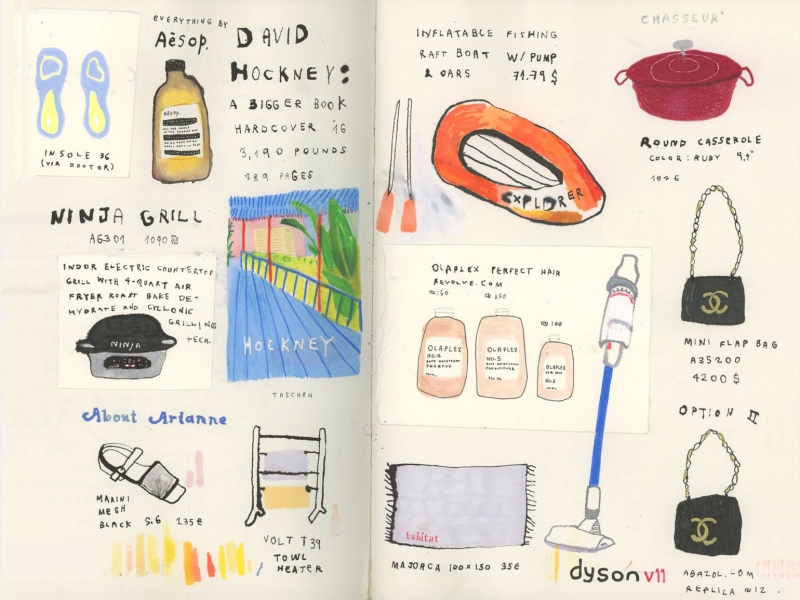 INSOLE 36
(VIA DOCTOR)
EVERYTHING BY
Aēsop.
Aēsop.
DAVID
HOCKNEY:
A BIGGER BOOK
HARDCOVER '16
3,190 POUNDS
489 PAGES
HOCKNEY
TASCHEN
NINJA GRILL
AG301 1090 ₪
INDOR ELECTRIC COUNTERTOP
GRILL WITH 4-QUART AIR
FRYER ROAST BAKE DE-
HYDRATE AND CYCLONIC
GRILLING
TECH.
NINJA
About Arianne
MAKINI
MESH
BLACK S.6 235€
VOLT T39
TOWL
HEATER
INFLATABLE FISHING
RAFT BOAT W/ PUMP
& OARS 71.79 $
EXPLORER
CHASSEUR'
ROUND CASSEROLE
COLOR: RUBY 9,4"
184 €
OLAPLEX PERFECT HAIR
REVOLVE.COM
₪150 ₪150
₪100
OLAPLEX
NO.4
BOND MAINTENANCE
SHAMPOO
OLAPLEX
NO.5
BOND MAINTENANCE
CONDITIONER
OLAPLEX
NO.3
MINI FLAP BAG
A35200
4200 $
OPTION II
habitat
MAJORCA 100x150 35€
dyson v11
ABAZOL.COM
REPLICA ₪12.